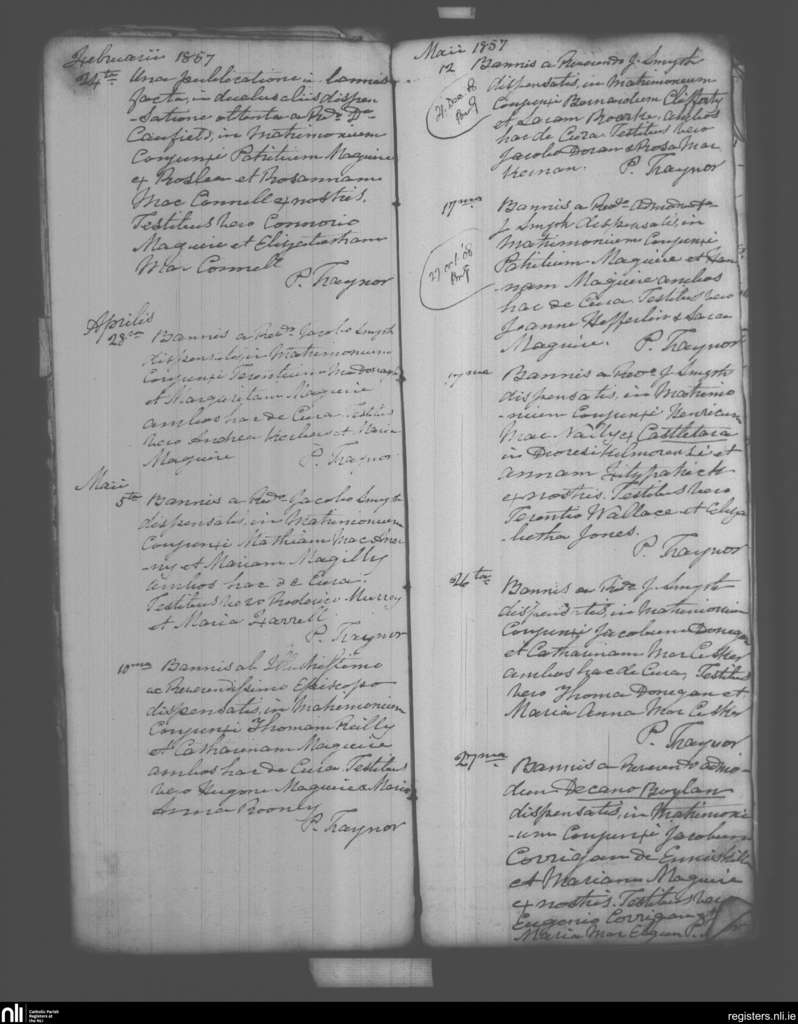 Februarii 1857
24ta Una publicatione in bannis
facta, in duabus aliis dispen
-satione obtenta a Revdo D.
Caufield, in Matrimonium
Conjunxi Patritium Maguire
ex Rosslea et Rosannam
Mac Connell ex nostris.
Testibus vero Connorio
Maguire et Elizabetham
Mac Connell
P. Traynor
Aprilis
28va Bannis a Revdo Jacobo Smyth
dispensatis, in Matrimonium
Conjunxi Terentium
et Margaritam Maguire
ambos hac de Cura. Testibus
vero Andrea et Maria
Maguire P. Traynor
Maii
5ta Bannis a Revdo Jacobo Smyth
dispensatis, in Matrimonium
Conjunxi Mathiam Mac
et Mariam Magilly
ambos hac de Cura.
Testibus vero Roderico Murrey
et Maria Farrell
P. Traynor
10ma Bannis ab Illustrissimo
ac Reverendissimo Episcopo
dispensatis, in Matrimonium
Conjunxi Thomam Reilly
et Catharinam Maguire
ambos hac de Cura. Testibus
vero Hugone Maguire & Maria
Anna Rooney
P. Traynor
Maii 1857
12 Bannis a Reverendo J. Smyth
dispensatis, in Matrimonium
Conjunxi Bernardum Clifferty
et Saram Roorke, ambos
hac de Cura Testibus vero
Jacobo Doran & Rosa Mac
Kiernan. P. Traynor
17ma Bannis a Revdo
J. Smyth dispensatis, in
Matrimonium Conjunxi
Patritium Maguire et Han
-nam Maguire ambos
hac de Cura. Testibus vero
Joanne & Sara
Maguire. P. Traynor
27 Oct. '08
17ma Bannis a Revdo J. Smyth
dispensatis, in Matrimo
-nium Conjunxi Henricum
Mac Nally ex Castletara
in Diocesi Kilmorensi et
Annam Fitzpatrick
ex nostris. Testibus vero
Terentio Wallace et Eliza
-betha Jones.
P. Traynor
26ta Bannis a Revdo J. Smyth
dispensatis, in Matrimonium
Conjunxi Jacobum Donegan
et Catharinam Mac Cusker
ambos hac de Cura, Testibus
vero Thoma Donegan et
Maria Anna Mac Cusker
P. Traynor
27ma Bannis a Reverendo admo
-dum Decano Boylan
dispensatis, in Matrimoni
-um Conjunxi Jacobum
Corrigan de Enniskillen
et Mariam Maguire
ex nostris. Testibus vero
Eugenio Corrigan et
Maria Mac
nli
Catholic Parish
Registers at
the NLI
registers.nli.ie